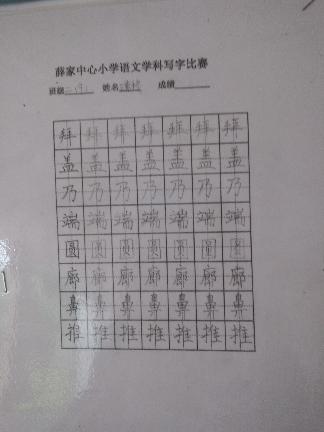 薛家中心小学语文学科写字比赛
班级 姓名 成绩
拜拜拜拜拜拜拜
盖盖盖盖盖盖盖
乃乃乃乃乃乃乃
端端端端端端端
圆圆圆圆圆圆圆
廊廊廊廊廊廊廊
鼻鼻鼻鼻鼻鼻鼻
推推推推推推推